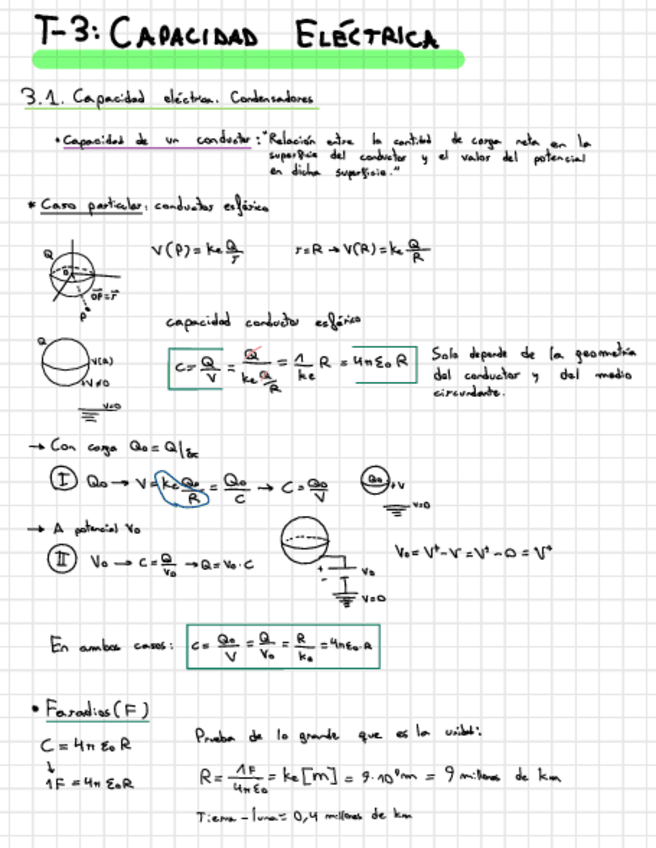 T-3: CAPACIDAD ELÉCTRICA
3.1. Capacidad eléctrica. Condensadores
• Capacidad de un conductor: "Relación entre la cantidad de carga neta en la
superficie del conductor y el valor del potencial
en dicha superficie."
* Caso particular: conductor esférico
V(P) = ke Q/r    r=R → V(R) = ke Q/R
Q
O
OP=r
P
capacidad conductor esférico
Q
V(R)
V≠0
V=0
C = Q/V = Q/(ke Q/R) = 1/ke R = 4πε0 R
Solo depende de la geometría
del conductor y del medio
circundante.
→ Con carga Q0 = Q|
I Q0 → V = ke Q0/R = Q0/C → C = Q0/V
Q0 +V
V=0
→ A potencial V0
II V0 → C = Q/V0 → Q = V0 · C
+ - V0
V=0
V0 = V⁺ - V⁻ = V⁺ - 0 = V⁺
En ambos casos: C = Q0/V = Q/V0 = R/ke = 4πε0·R
• Faradios (F)
C = 4π ε0 R
↓
1F = 4π ε0 R
Prueba de lo grande que es la unidad:
R = 1F/4πε0 = ke [m] = 9·10⁹ m = 9 millones de km
Tierra - luna = 0,4 millones de km